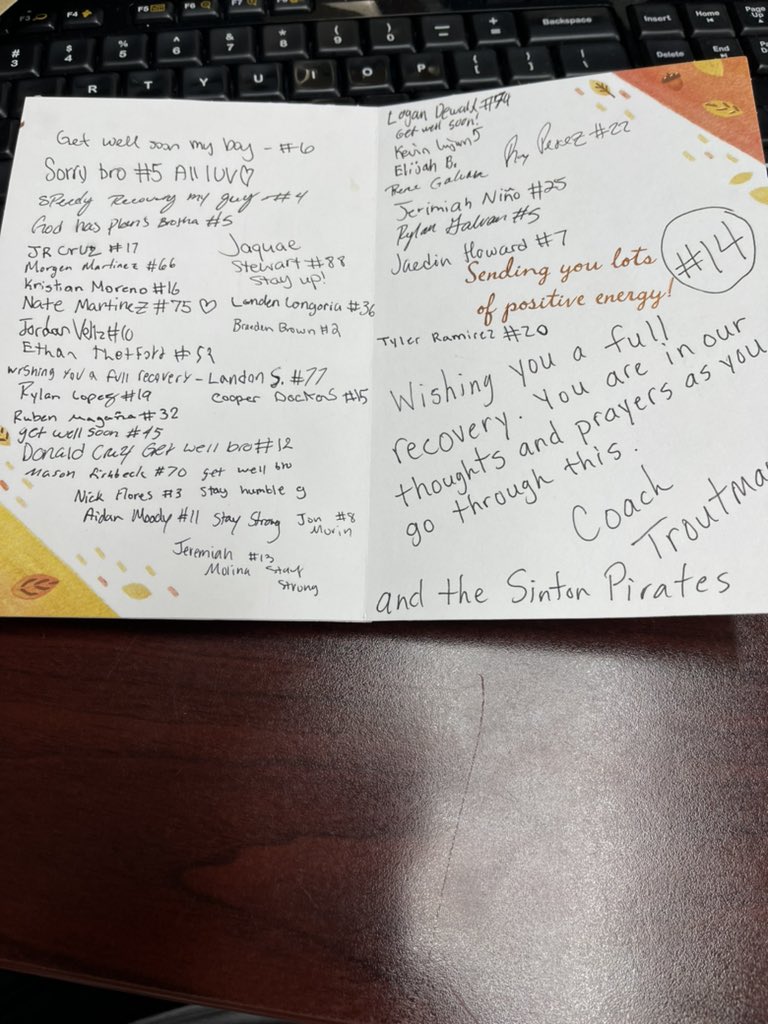 F3
F4
F5
F6
F7
#
3
$
4
%
5
^
6
&
7
*
8
(
9
)
0
+
=
Backspace
Insert
Home
Page
Up
R
T
Y
U
I
O
P
{
[
}
]
|
\
Delete
End
Get well soon my boy - #6
Sorry bro #5 All luv♡
Speedy Recovery my guy - #4
God has plans Brotha #5
JR Cruz #17
Morgen Martinez #66
Kristian Moreno #16
Nate Martinez #75 ♡
Jordan Veliz #10
Ethan Thetford #52
Jaquae
Stewart #88
Stay up!
Landen Longoria #36
Braeden Brown #2
wishing you a full recovery - Landon S. #77
Rylan Lopez #19
Cooper Dockins #15
Ruben Magaña #32
get well soon #45
Donald Cruz Get well bro #12
Mason #70 get well bro
Nick Flores #3 Stay humble g
Aidan Moody #11 Stay Strong
Jon #8
Morin
Jeremiah #13
Molina Stay
Strong
Logan Dewald #54
Get well soon!
Kevin 5
Elijah B.
Rene Galvan
Perez #22
Jerimiah Niño #25
Rylan Galvan #5
Jaedin Howard #7
Sending you lots
of positive energy!
#14
Tyler Ramirez #20
Wishing you a full
recovery. You are in our
thoughts and prayers as you
go through this.
Coach
Troutma
and the Sinton Pirates